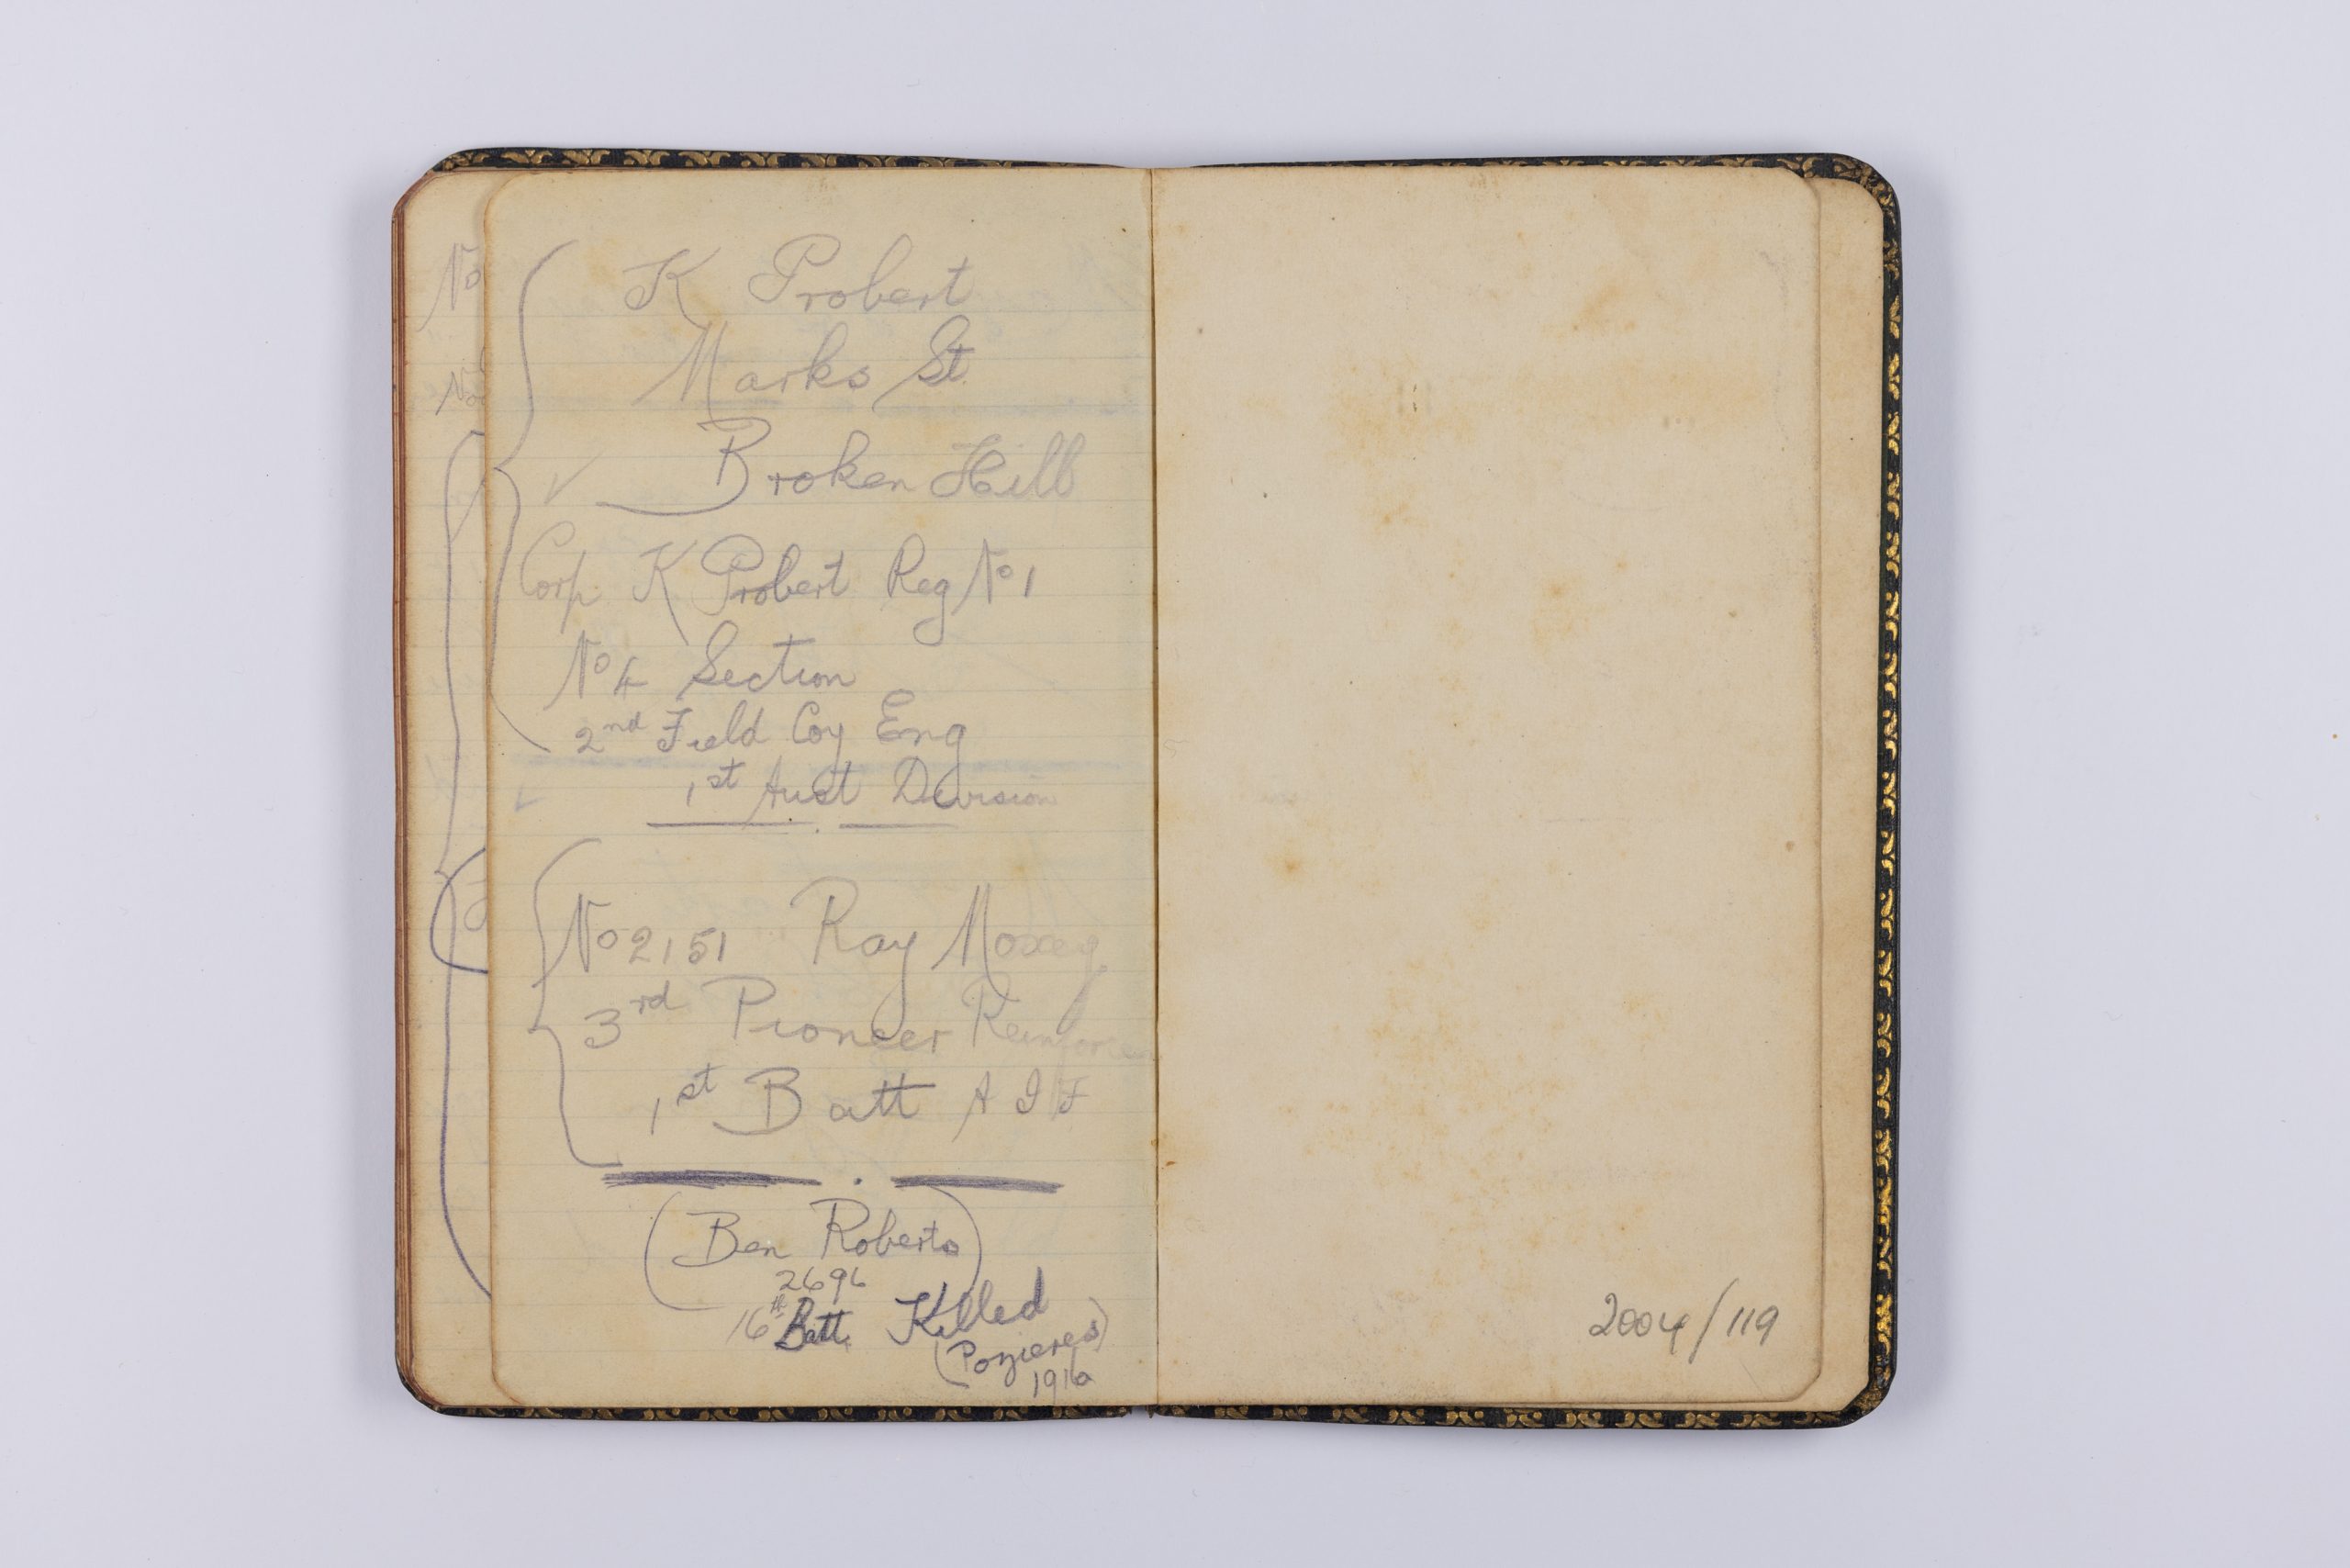 K Probert
Marks St
Broken Hill
Corp K Probert Reg No 1
No 4 Section
2nd Field Coy Eng
1st Aust Division
No 2151 Ray Moxey
3rd Pioneer
1st Batt A I F
(Ben Roberts)
2696
16th Batt. Killed
(Pozieres)
1916
No
No
2004/119